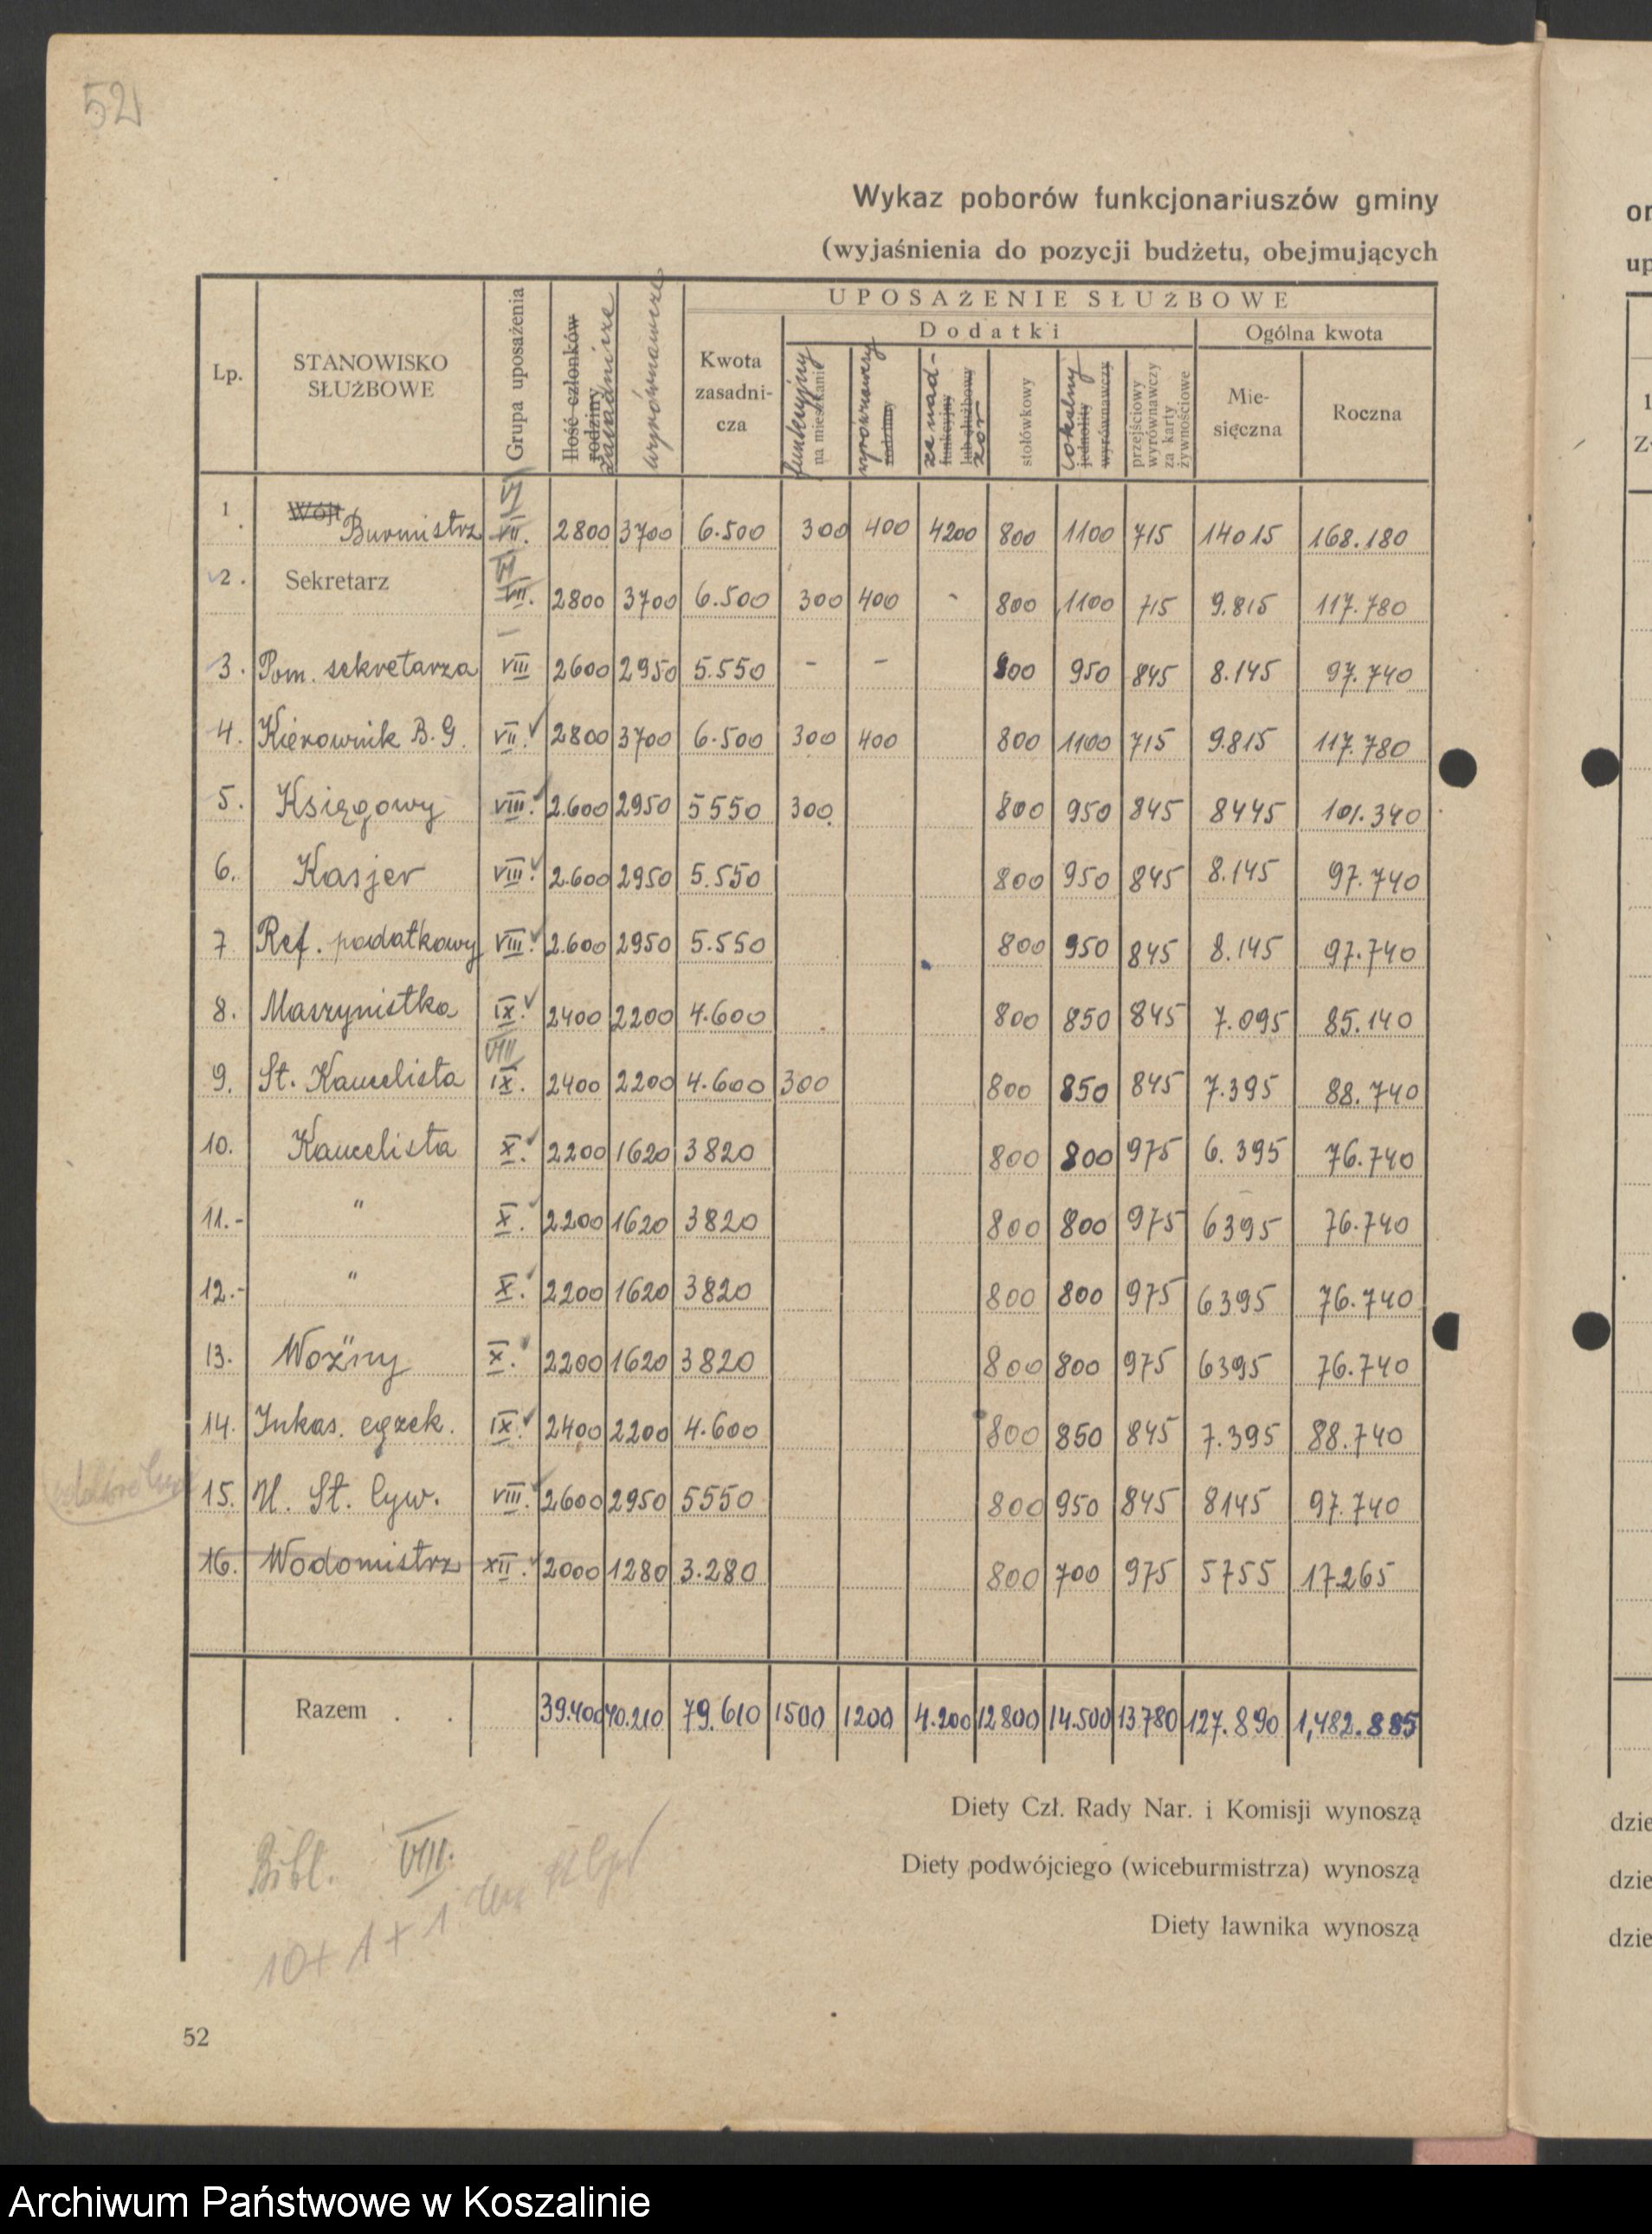 52
Wykaz poborów funkcjonariuszów gminy
(wyjaśnienia do pozycji budżetu, obejmujących
Lp.
STANOWISKO SŁUŻBOWE
Grupa uposażenia
Ilość członków rodziny
zasadnicze
wyrównawcze
UPOSAŻENIE SŁUŻBOWE
Kwota zasadnicza
Dodatki
funkcyjny
na mieszkanie
wyrównawczy
rodzinny
za nadzor
funkcyjny lub służbowy
stołówkowy
lokalny
jednolity wyrównawczy
przejściowy wyrównawczy za karty żywnościowe
Ogólna kwota
Miesięczna
Roczna
1. Wójt Burmistrz VI VII. 2800 3700 6.500 300 400 4200 800 1100 715 14015 168.180
2. Sekretarz VI VII. 2800 3700 6.500 300 400 - 800 1100 715 9.815 117.780
3. Pom. sekretarza VIII 2600 2950 5.550 - - 800 950 845 8.145 97.740
4. Kierownik B.G. VII. 2800 3700 6.500 300 400 800 1100 715 9.815 117.780
5. Księgowy VIII. 2.600 2950 5550 300 800 950 845 8445 101.340
6. Kasjer VIII. 2.600 2950 5.550 800 950 845 8.145 97.740
7 Ref. podatkowy VIII. 2.600 2950 5.550 800 950 845 8.145 97.740
8. Maszynistka IX. 2400 2200 4.600 800 850 845 7.095 85.140
9. St. Kancelista VIII IX. 2400 2200 4.600 300 800 850 845 7.395 88.740
10. Kancelista X. 2200 1620 3820 800 800 975 6.395 76.740
11.- " X. 2200 1620 3820 800 800 975 6395 76.740
12.- " X. 2200 1620 3820 800 800 975 6395 76.740
13. Woźny X. 2200 1620 3820 800 800 975 6395 76.740
14. Inkas. egzek. IX. 2400 2200 4.600 800 850 845 7.395 88.740
15. U. St. Cyw. VIII. 2600 2950 5550 800 950 845 8145 97.740
16. Wodomistrz XII. 2000 1280 3.280 800 700 975 5755 17265
Razem . . 39.400 40.210 79.610 1500 1200 4.200 12800 14.500 13.780 127.890 1,482.885
Diety Czł. Rady Nar. i Komisji wynoszą
Diety podwójciego (wiceburmistrza) wynoszą
Diety ławnika wynoszą
Bibl. VIII.
10 + 1 + 1
52
or
up
1
Z
dzie
dzie
dzie
Archiwum Państwowe w Koszalinie